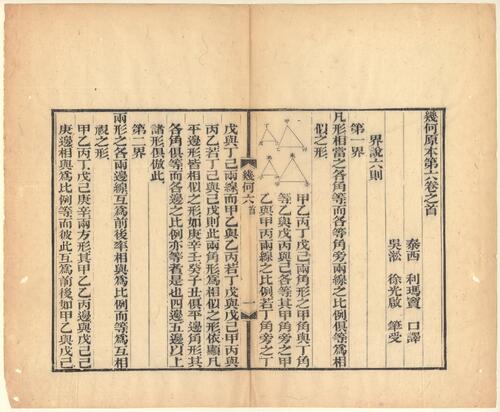 幾何原本第六卷之首
泰西 利瑪竇 口譯
吳淞 徐光啟 筆受
界說六則
第一界
凡形相當之各角等而各等角旁兩線之比例俱等爲相
似之形
甲乙丙丁戊己兩角形之甲角與丁角
等乙與戊丙與己各等其甲角旁之甲
乙與甲丙兩線之比例若丁角旁之丁
幾何六 首
一
戊與丁己兩線而甲乙與乙丙若丁戊與戊己甲丙與
丙乙若丁己與己戊則此兩角形爲相似之形依顯凡
平邊形皆相似之形如庚辛壬癸子丑俱平邊角形其
各角俱等而各邊之比例亦等者是也四邊五邊以上
諸形俱倣此
第二界
兩形之各兩邊線互爲前後率相與爲比例而等爲互相
視之形
甲乙丙丁戊己庚辛兩方形其甲乙乙丙邊與戊己己
庚邊相與爲比例等而彼此互爲前後如甲乙與戊己